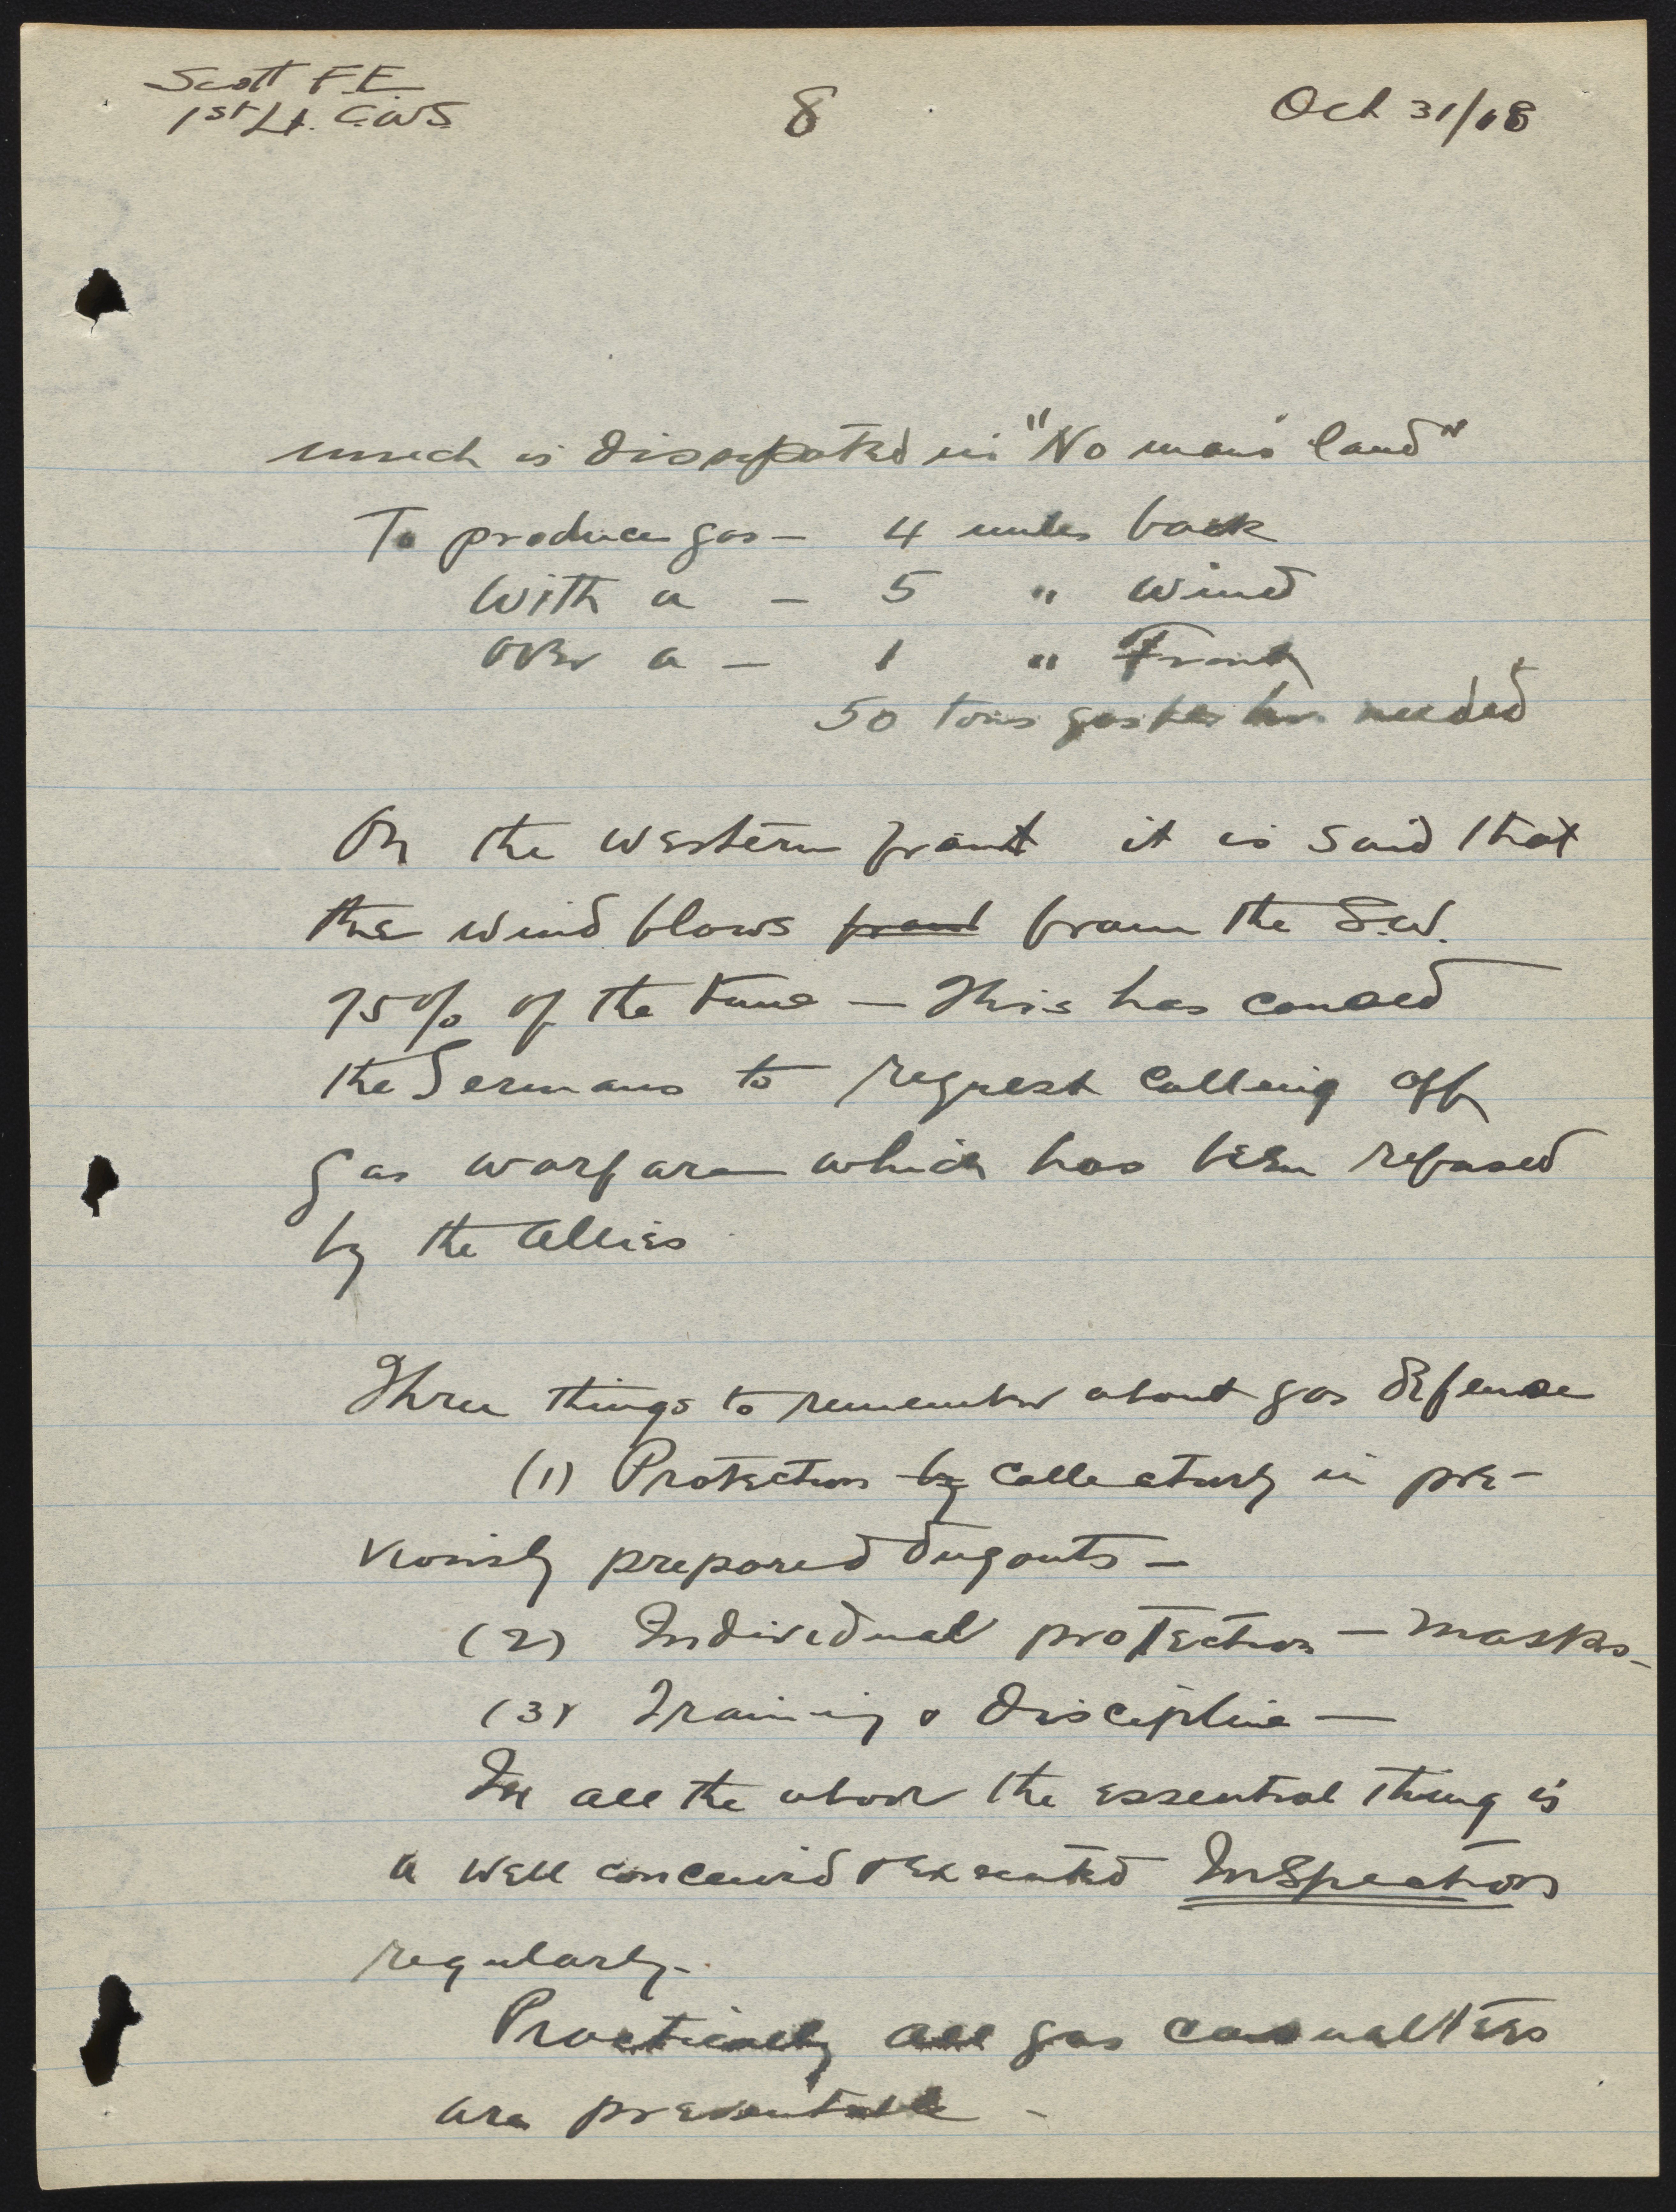 Scott F.E.
1st Lt. C.W.S.
8
Oct 31/18
much is dissipated in "No mans land"
To produce gas — 4 miles back
With a — 5 " wind
over a — 1 " Front
50 tons gas per hr. needed
On the western front it is said that
the wind blows front from the S.W.
75% of the time — This has caused
the Germans to request calling off
gas warfare which has been refused
by the Allies
Three things to remember about gas defense
(1) Protection by collectively in pre-
viously prepared dugouts —
(2) Individual protection — masks —
(3) Training & discipline —
In all the above the essential thing is
a well conceived & executed Inspection
regularly.
Practically all gas casualties
are preventable —